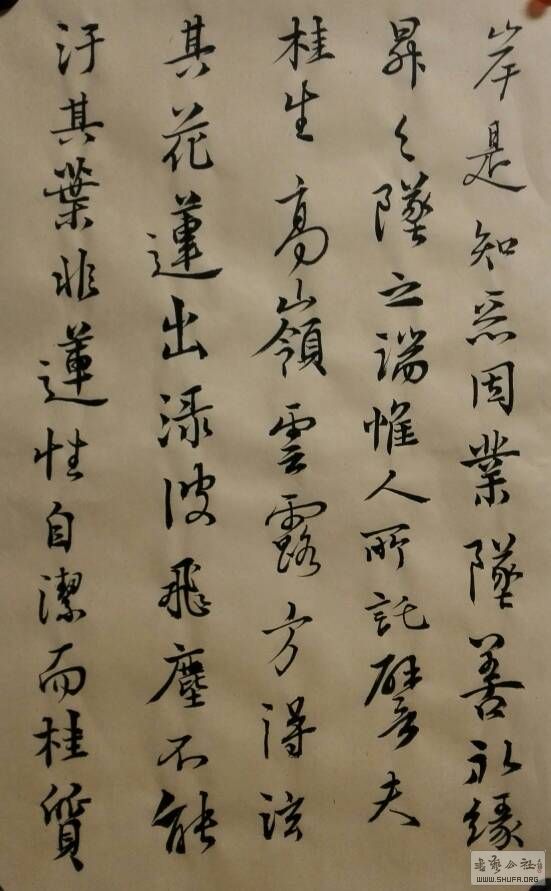 岸是知惡因業墜善以緣
昇々墜之端惟人所託譬夫
桂生高嶺雲露方得泫
其花蓮出渌波飛塵不能
汙其葉非蓮性自潔而桂質
书艺公社
WWW.SHUFA.ORG